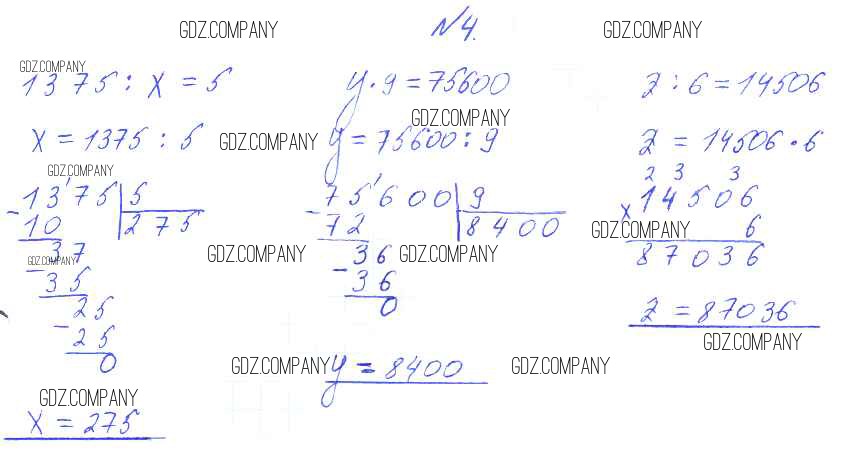 GDZ.COMPANY №4. GDZ.COMPANY
GDZ.COMPANY
1375 : x = 5
x = 1375 : 5
GDZ.COMPANY
GDZ.COMPANY
-1375 | 5
10 | 275
37
GDZ.COMPANY
-35
25
-25
0
GDZ.COMPANY
x = 275
y · 9 = 75600
GDZ.COMPANY
y = 75600 : 9
-75600 | 9
72 | 8400
GDZ.COMPANY GDZ.COMPANY
36
-36
0
GDZ.COMPANY
y = 8400
GDZ.COMPANY
z : 6 = 14506
z = 14506 · 6
2 3 3
x 14506
GDZ.COMPANY
6
87036
z = 87036
GDZ.COMPANY